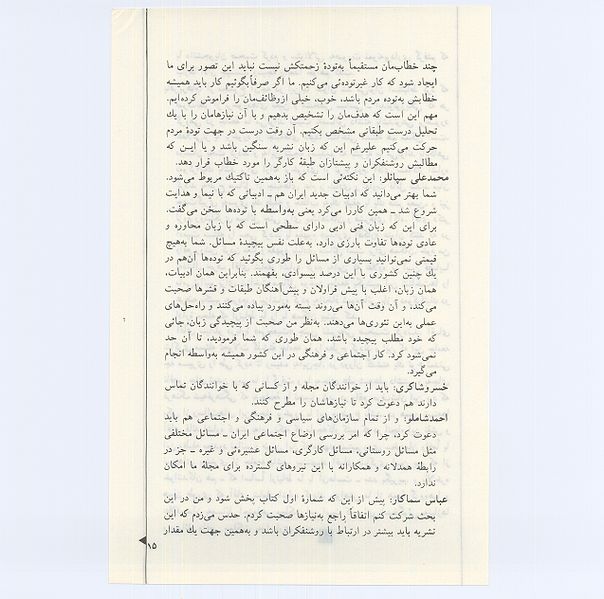 چند خطاب‌مان مستقیماً به‌تودهٔ زحمتکش نیست نباید این تصور برای ما
ایجاد شود که کار غیرتوده‌ئی می‌کنیم. ما اگر صرفاً بگوئیم کار باید همیشه
خطابش به‌توده مردم باشد، خوب، خیلی از وظائف‌مان را فراموش کرده‌ایم.
مهم این است که هدف‌مان را تشخیص بدهیم و با آن نیازهامان را با یك
تحلیل درست طبقاتی مشخص بکنیم. آن وقت درست در جهت تودهٔ مردم
حرکت می‌کنیم علیرغم این که زبان نشریه سنگین باشد و یا ایـن که
مطالبش روشنفکران و پیشتازان طبقهٔ کارگر را مورد خطاب قرار دهد.
محمدعلی سپانلو: این نکته‌ئی است که باز به‌همین تاکتیك مربوط می‌شود.
شما بهتر می‌دانید که ادبیات جدید ایران هم ـ ادبیاتی که با نیما و هدایت
شروع شد ـ همین کاررا می‌کرد یعنی به‌واسطه با توده‌ها سخن می‌گفت.
برای این که زبان فنی ادبی دارای سطحی است که با زبان محاوره و
عادی توده‌ها تفاوت بارزی دارد، به‌علت نفس پیچیدهٔ مسائل. شما به‌هیچ
قیمتی نمی‌توانید بسیاری از مسائل را طوری بگوئید که توده‌ها آن‌هم در
یك چنین کشوری با این درصد بیسوادی، بفهمند. بنابراین همان ادبیات،
همان زبان، اغلب با پیش قراولان و پیش‌آهنگان طبقات و قشرها صحبت
می‌کند، و آن وقت آن‌ها می‌روند بسته به‌مورد پیاده می‌کنند و راه‌حل‌های
عملی به‌این تئوری‌ها می‌دهند. به‌نظر من صحبت از پیچیدگی زبان، جائی
که خود مطلب پیچیده باشد، همان طوری که شما فرمودید، تا آن حد
نمی‌شود کرد. کار اجتماعی و فرهنگی در این کشور همیشه به‌واسطه انجام
می‌گیرد.
خسروشاکری: باید از خوانندگان مجله و از کسانی که با خوانندگان تماس
دارند هم دعوت کرد تا نیازهاشان را مطرح کنند.
احمدشاملو: و از تمام سازمان‌های سیاسی و فرهنگی و اجتماعی هم باید
دعوت کرد، چرا که امر بررسی اوضاع اجتماعی ایران ـ مسائل مختلفی
مثل مسائل روستائی، مسائل کارگری، مسائل عشیره‌ئی و غیره ـ جز در
رابطهٔ همدلانه و همکارانه با این نیروهای گسترده برای مجلهٔ ما امکان
ندارد.
عباس سماکار: پیش از این که شمارهٔ اول کتاب پخش شود و من در این
بحث شرکت کنم اتفاقاً راجع به‌نیازها صحبت کردم. حدس می‌زدم که این
نشریه باید بیشتر در ارتباط با روشنفکران باشد و به‌همین جهت یك مقدار
۱۵